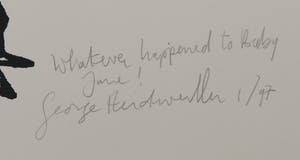 Whatever happened to Baby
Jane!
George 1/97